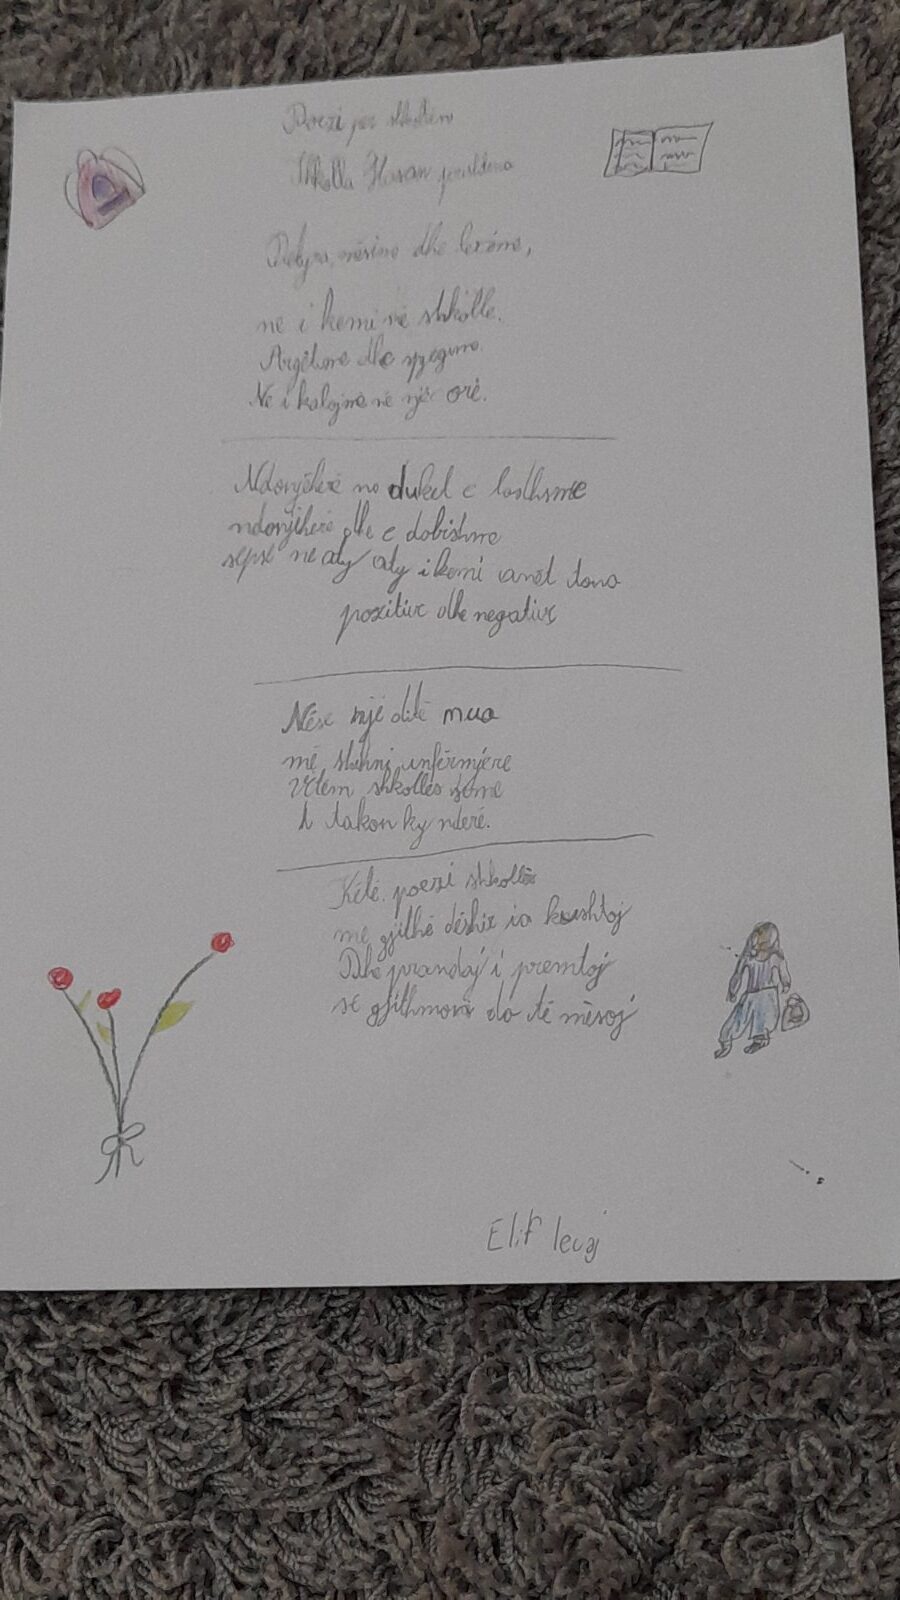 Poezi për shkollën
Shkolla Hasan prishtina
Detyra, mësime dhe lexime,
ne i kemi në shkolle.
Argëtime dhe spjegime
Ne i kalojme në një orë.
Ndonjëherë na duket e lodhsme
ndonjiherë dhe e dobishme
sepse ne aty aty i kemi anët tona
pozitive dhe negative
Nëse një ditë mua
më shihni infermjere
Vetëm shkollës sime
I takon ky nderë.
Këtë poezi shkollës
me gjithë dëshir ia kushtoj
Dhe prandaj i premtoj
se gjithmonë do të mësoj
Elif lecaj